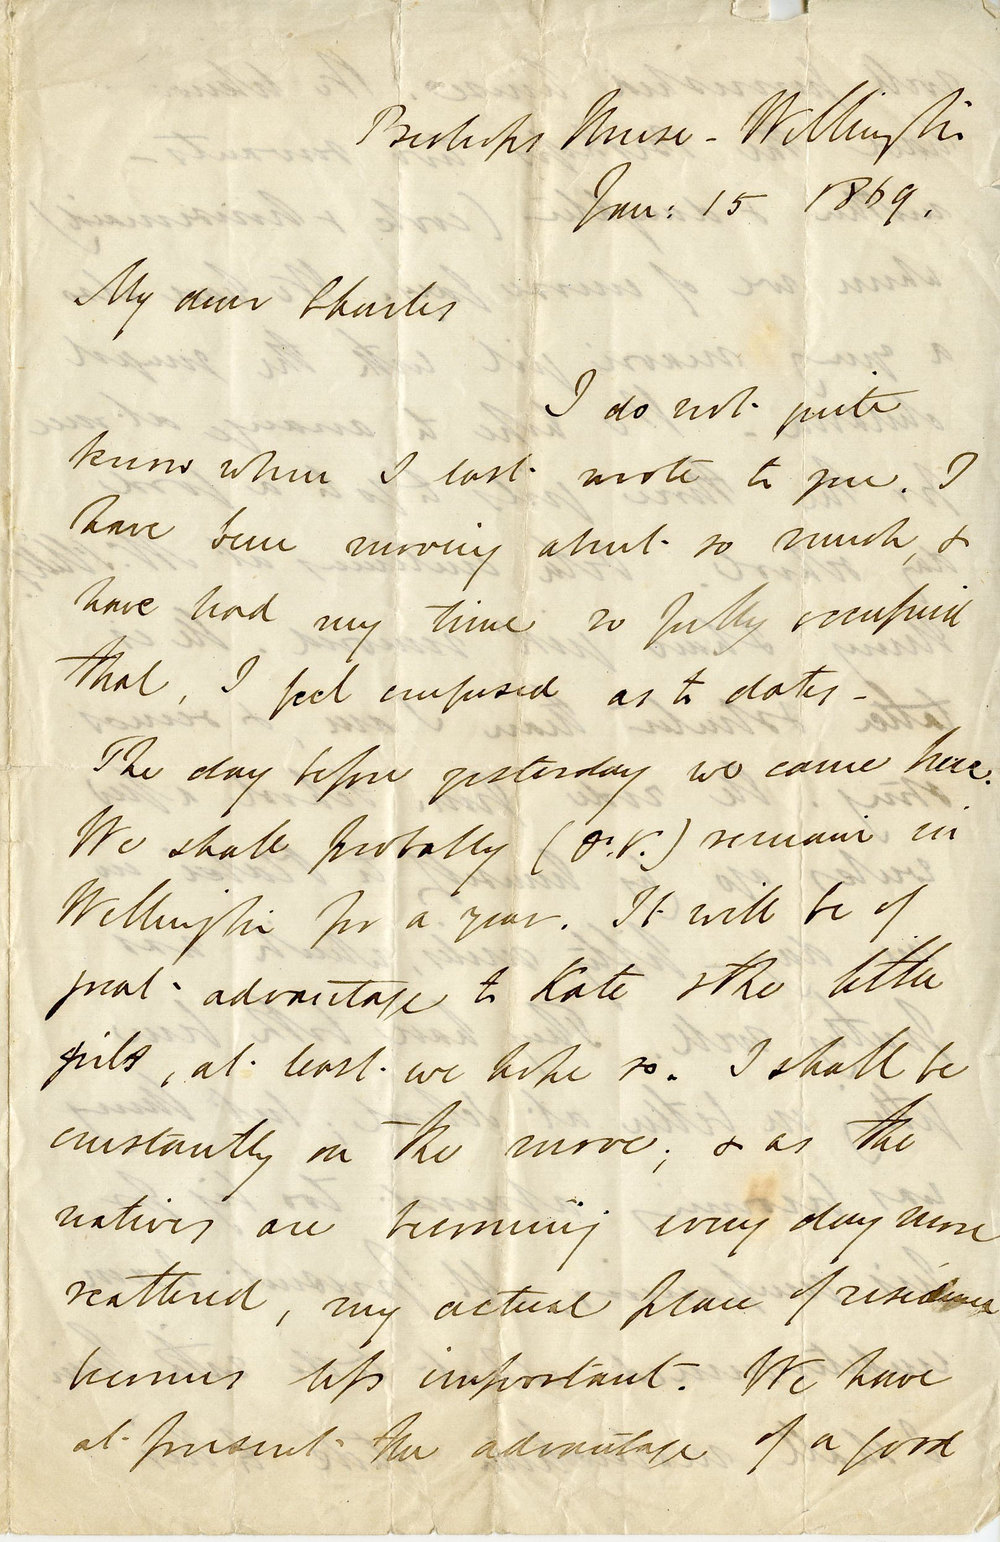 Bishops House - Wellington
Jan: 15 1869.
My dear Charles
I do not quite
know when I last wrote to you. I
have been moving about so much, &
have had my time so fully occupied
that, I feel confused as to dates -
The day before yesterday we came here.
We shall probably (D.V.) remain in
Wellington for a year. It will be of
great advantage to Kate & the little
girls, at least we hope so. I shall be
constantly on the move; & as the
natives are becoming every day more
scattered, my actual place of residence
becomes less important. We have
at present the advantage of a good